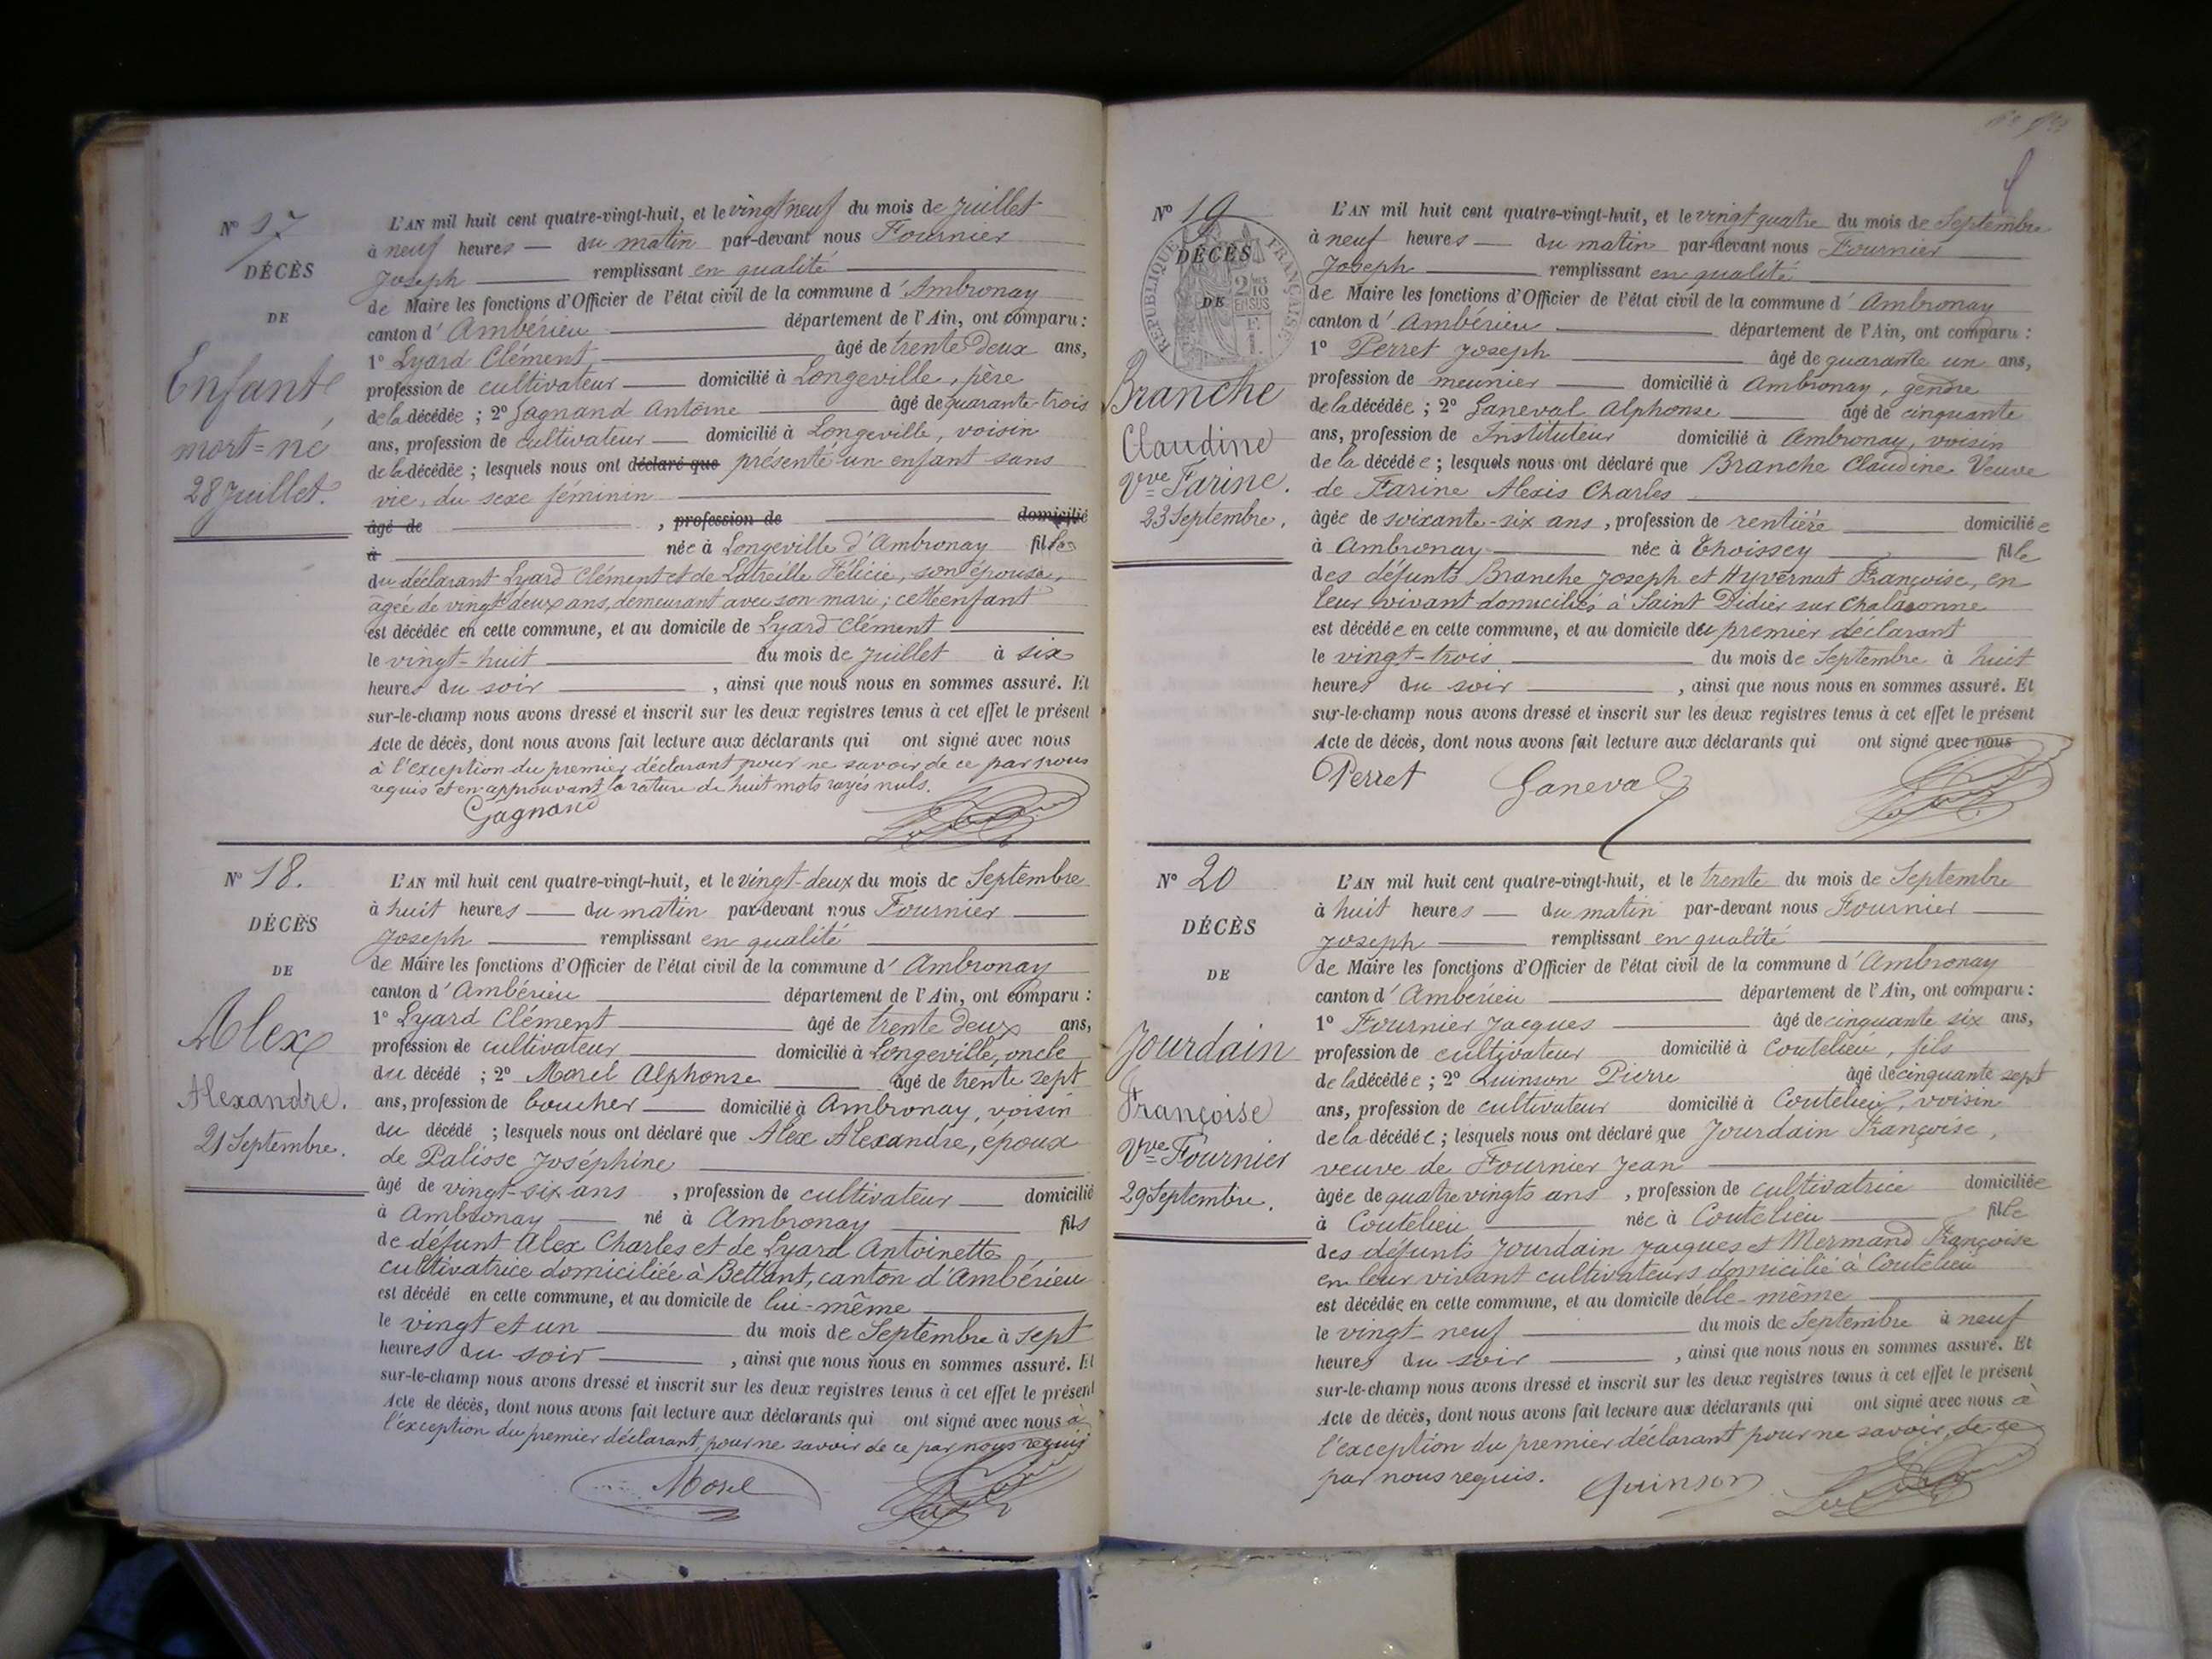 Nº 17
DÉCÈS
DE
Enfant
mort=né
28 Juillet.
L'AN mil huit cent quatre-vingt-huit, et le vingt neuf du mois de Juillet
à neuf heures — du matin par-devant nous Fournier
Joseph — remplissant en qualité
de Maire les fonctions d'Officier de l'état civil de la commune d'Ambronay
canton d'Ambérieu — département de l'Ain, ont comparu :
1º Lyard Clément — âgé de trente Deux ans,
profession de cultivateur — domicilié à Longeville, père
de la décédée ; 2º Gagnand Antoine — âgé de quarante-trois
ans, profession de cultivateur — domicilié à Longeville, voisin
de la décédée ; lesquels nous ont déclaré que présenté un enfant sans
vie, du sexe féminin —
âgé de — , profession de — domicilié
à — née à Longeville d'Ambronay fille
du déclarant Lyard Clément et de Latreille Félicie, son épouse,
âgée de vingt deux ans, demeurant avec son mari ; cette enfant
est décédée en cette commune, et au domicile de Lyard Clément —
le vingt-huit — du mois de Juillet à six
heures du soir — , ainsi que nous nous en sommes assuré. Et
sur-le-champ nous avons dressé et inscrit sur les deux registres tenus à cet effet le présent
Acte de décès, dont nous avons fait lecture aux déclarants qui ont signé avec nous
à l'exception du premier déclarant pour ne savoir de ce par nous
requis et en approuvant la rature de huit mots rayés nuls.
Gagnand
Nº 18.
DÉCÈS
DE
Alex
Alexandre.
21 Septembre.
L'AN mil huit cent quatre-vingt-huit, et le vingt-deux du mois de Septembre
à huit heures — du matin par-devant nous Fournier —
Joseph — remplissant en qualité —
de Maire les fonctions d'Officier de l'état civil de la commune d'Ambronay
canton d'Ambérieu — département de l'Ain, ont comparu :
1º Lyard Clément — âgé de trente Deux ans,
profession de cultivateur — domicilié à Longeville, oncle
du décédé ; 2º Morel Alphonse — âgé de trente sept
ans, profession de boucher — domicilié à Ambronay, voisin
du décédé ; lesquels nous ont déclaré que Alex Alexandre, époux
de Palisse Joséphine —
âgé de vingt-six ans , profession de cultivateur — domicilié
à Ambronay — né à Ambronay — fils
de défunt Alex Charles et de Lyard Antoinette
cultivatrice domiciliée à Bettant, canton d'Ambérieu
est décédé en cette commune, et au domicile de lui-même —
le vingt et un — du mois de Septembre à sept
heures du soir — , ainsi que nous nous en sommes assuré. Et
sur-le-champ nous avons dressé et inscrit sur les deux registres tenus à cet effet le présent
Acte de décès, dont nous avons fait lecture aux déclarants qui ont signé avec nous à
l'exception du premier déclarant, pour ne savoir de ce par nous requis
Morel
Nº 19
DÉCÈS
DE
RÉPUBLIQUE FRANÇAISE
2/10 EN SUS
Branche
Claudine
Vve Farine.
23 Septembre.
L'AN mil huit cent quatre-vingt-huit, et le vingt quatre du mois de Septembre
à neuf heures — du matin par-devant nous Fournier —
Joseph — remplissant en qualité —
de Maire les fonctions d'Officier de l'état civil de la commune d'Ambronay
canton d'Ambérieu — département de l'Ain, ont comparu :
1º Perret Joseph — âgé de quarante un ans,
profession de meunier — domicilié à Ambronay, gendre
de la décédée ; 2º Ganeval Alphonse — âgé de cinquante
ans, profession de Instituteur domicilié à Ambronay, voisin
de la décédée ; lesquels nous ont déclaré que Branche Claudine Veuve
de Farine Alexis Charles —
âgée de soixante-six ans , profession de rentière — domiciliée
à Ambronay — née à Thoissey — fille
des défunts Branche Joseph et Hyvernat Françoise, en
leur vivant domiciliés à Saint Didier sur Chalaronne
est décédée en cette commune, et au domicile du premier déclarant
le vingt-trois — du mois de Septembre à huit
heures du soir — , ainsi que nous nous en sommes assuré. Et
sur-le-champ nous avons dressé et inscrit sur les deux registres tenus à cet effet le présent
Acte de décès, dont nous avons fait lecture aux déclarants qui ont signé avec nous
Perret Ganeval
Nº 20
DÉCÈS
DE
Jourdain
Françoise
Vve Fournier
29 Septembre.
L'AN mil huit cent quatre-vingt-huit, et le trente du mois de Septembre
à huit heures — du matin par-devant nous Fournier —
Joseph — remplissant en qualité —
de Maire les fonctions d'Officier de l'état civil de la commune d'Ambronay
canton d'Ambérieu — département de l'Ain, ont comparu :
1º Fournier Jacques — âgé de cinquante six ans,
profession de cultivateur domicilié à Coutelieu, fils
de la décédée ; 2º Quinson Pierre âgé de cinquante sept
ans, profession de cultivateur domicilié à Coutelieu, voisin
de la décédée ; lesquels nous ont déclaré que Jourdain Françoise,
veuve de Fournier Jean —
âgée de quatre vingts ans , profession de cultivatrice domiciliée
à Coutelieu — née à Coutelieu — fille
des défunts Jourdain Jacques et Mermand Françoise
en leur vivant cultivateurs domicilié à Coutelieu
est décédée en cette commune, et au domicile d'elle-même —
le vingt neuf — du mois de Septembre à neuf
heures du soir — , ainsi que nous nous en sommes assuré. Et
sur-le-champ nous avons dressé et inscrit sur les deux registres tenus à cet effet le présent
Acte de décès, dont nous avons fait lecture aux déclarants qui ont signé avec nous à
l'exception du premier déclarant pour ne savoir, de ce
par nous requis. Quinson